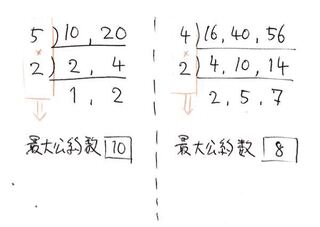 5 ) 10 , 20
×
2 ) 2 , 4
1 , 2
最大公約数 10
4 ) 16, 40, 56
×
2 ) 4, 10, 14
2, 5, 7
最大公約数 8